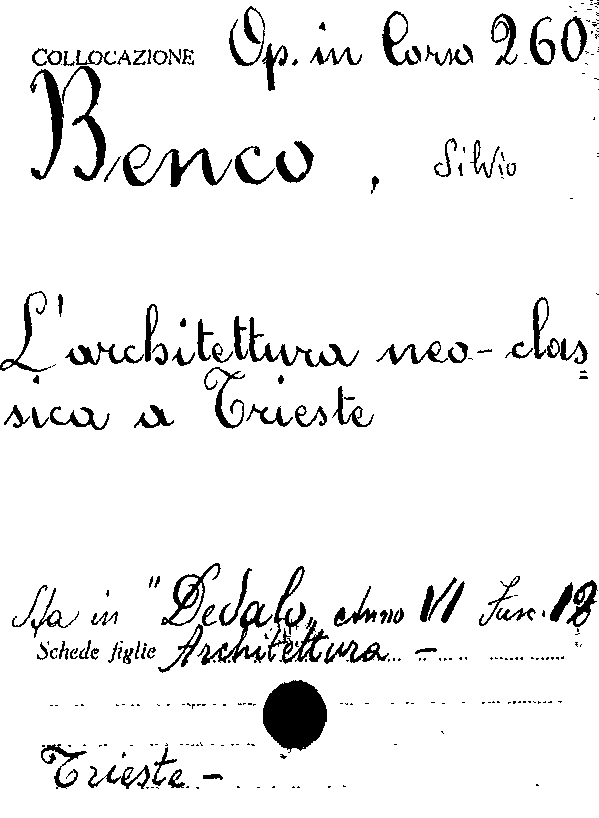 COLLOCAZIONE Op. in Corso 260
Benco, Silvio
L'architettura neo-clas=
sica a Trieste
Sta in "Dedalo" Anno VI Fasc.
Schede figlie Architettura -
Trieste -